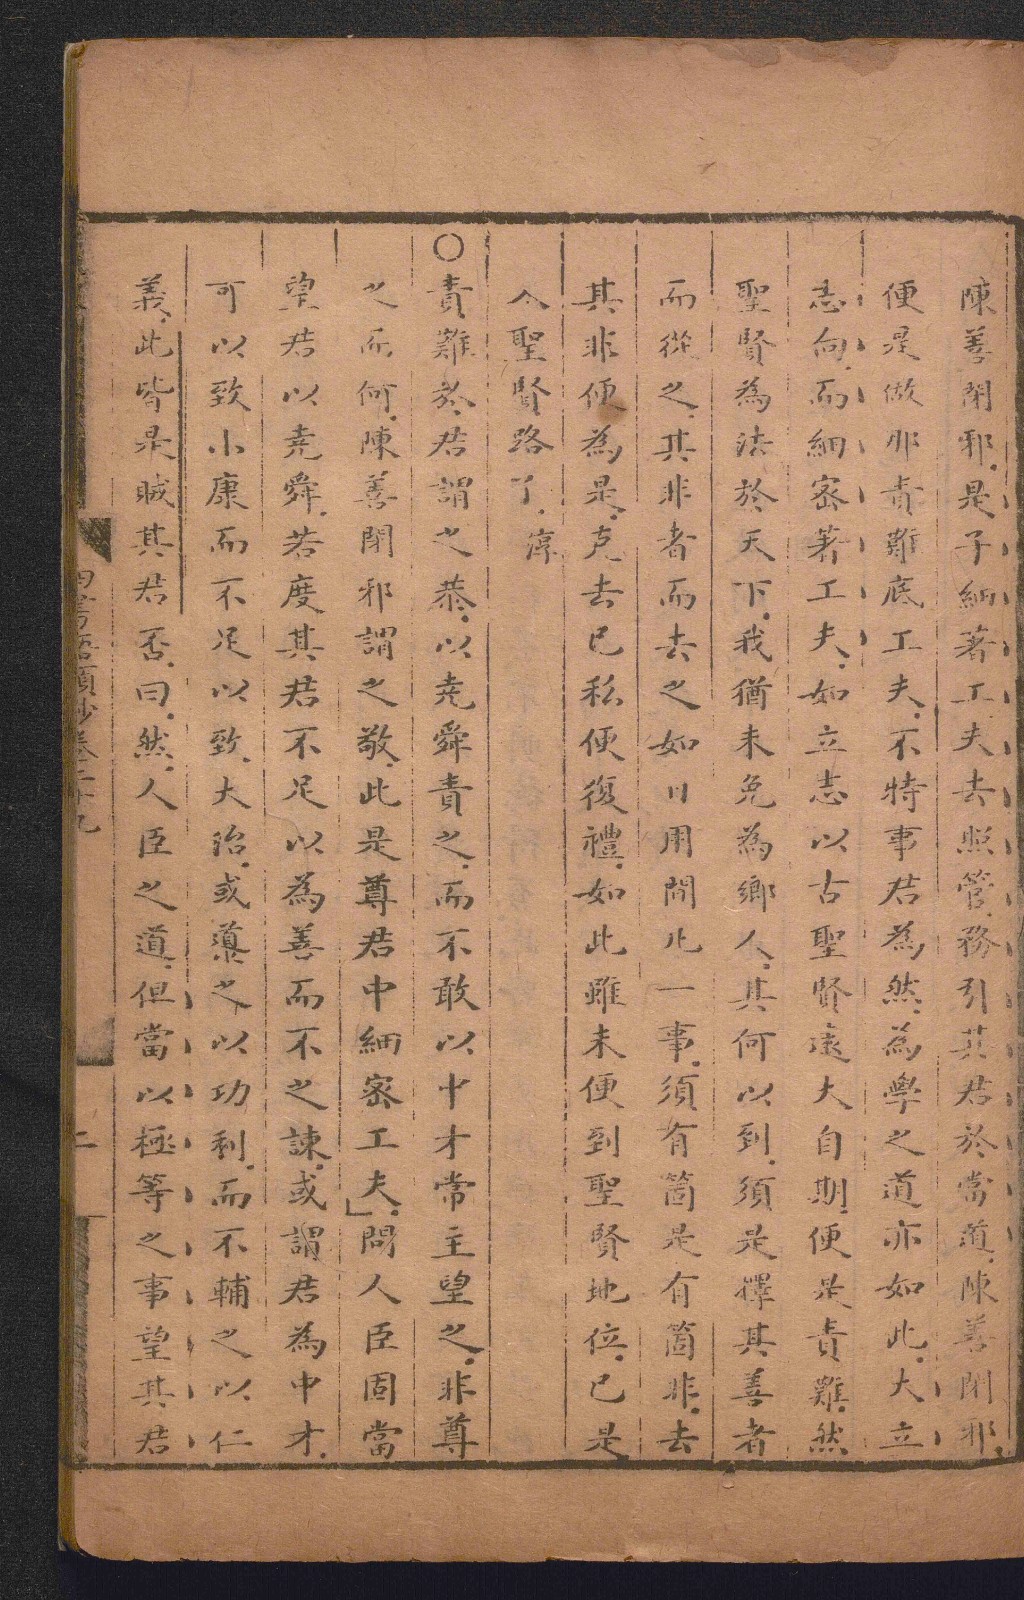 陳善閉邪是子細著工夫去照管務引其君於當道陳善閉邪
便是做那責難底工夫不特事君為然為學之道亦如此大立
志向而細密著工夫如立志以古聖賢遠大自期便是責難然
聖賢為法於天下我猶未免為鄉人其何以到須是擇其善者
而從之其非者而去之如日用間凡一事須有箇是有箇非去
其非便為是克去己私便復禮如此雖未便到聖賢地位已是
入聖賢路了淳
○責難於君謂之恭以堯舜責之而不敢以中才常主望之非尊
之而何陳善閉邪謂之敬此是尊君中細密工夫問人臣固當
望君以堯舜若度其君不足以為善而不之諫或謂君為中才
可以致小康而不足以致大治或導之以功利而不輔之以仁
義此皆是賊其君否曰然人臣之道但當以極等之事望其君
四書語類抄卷二十九
二